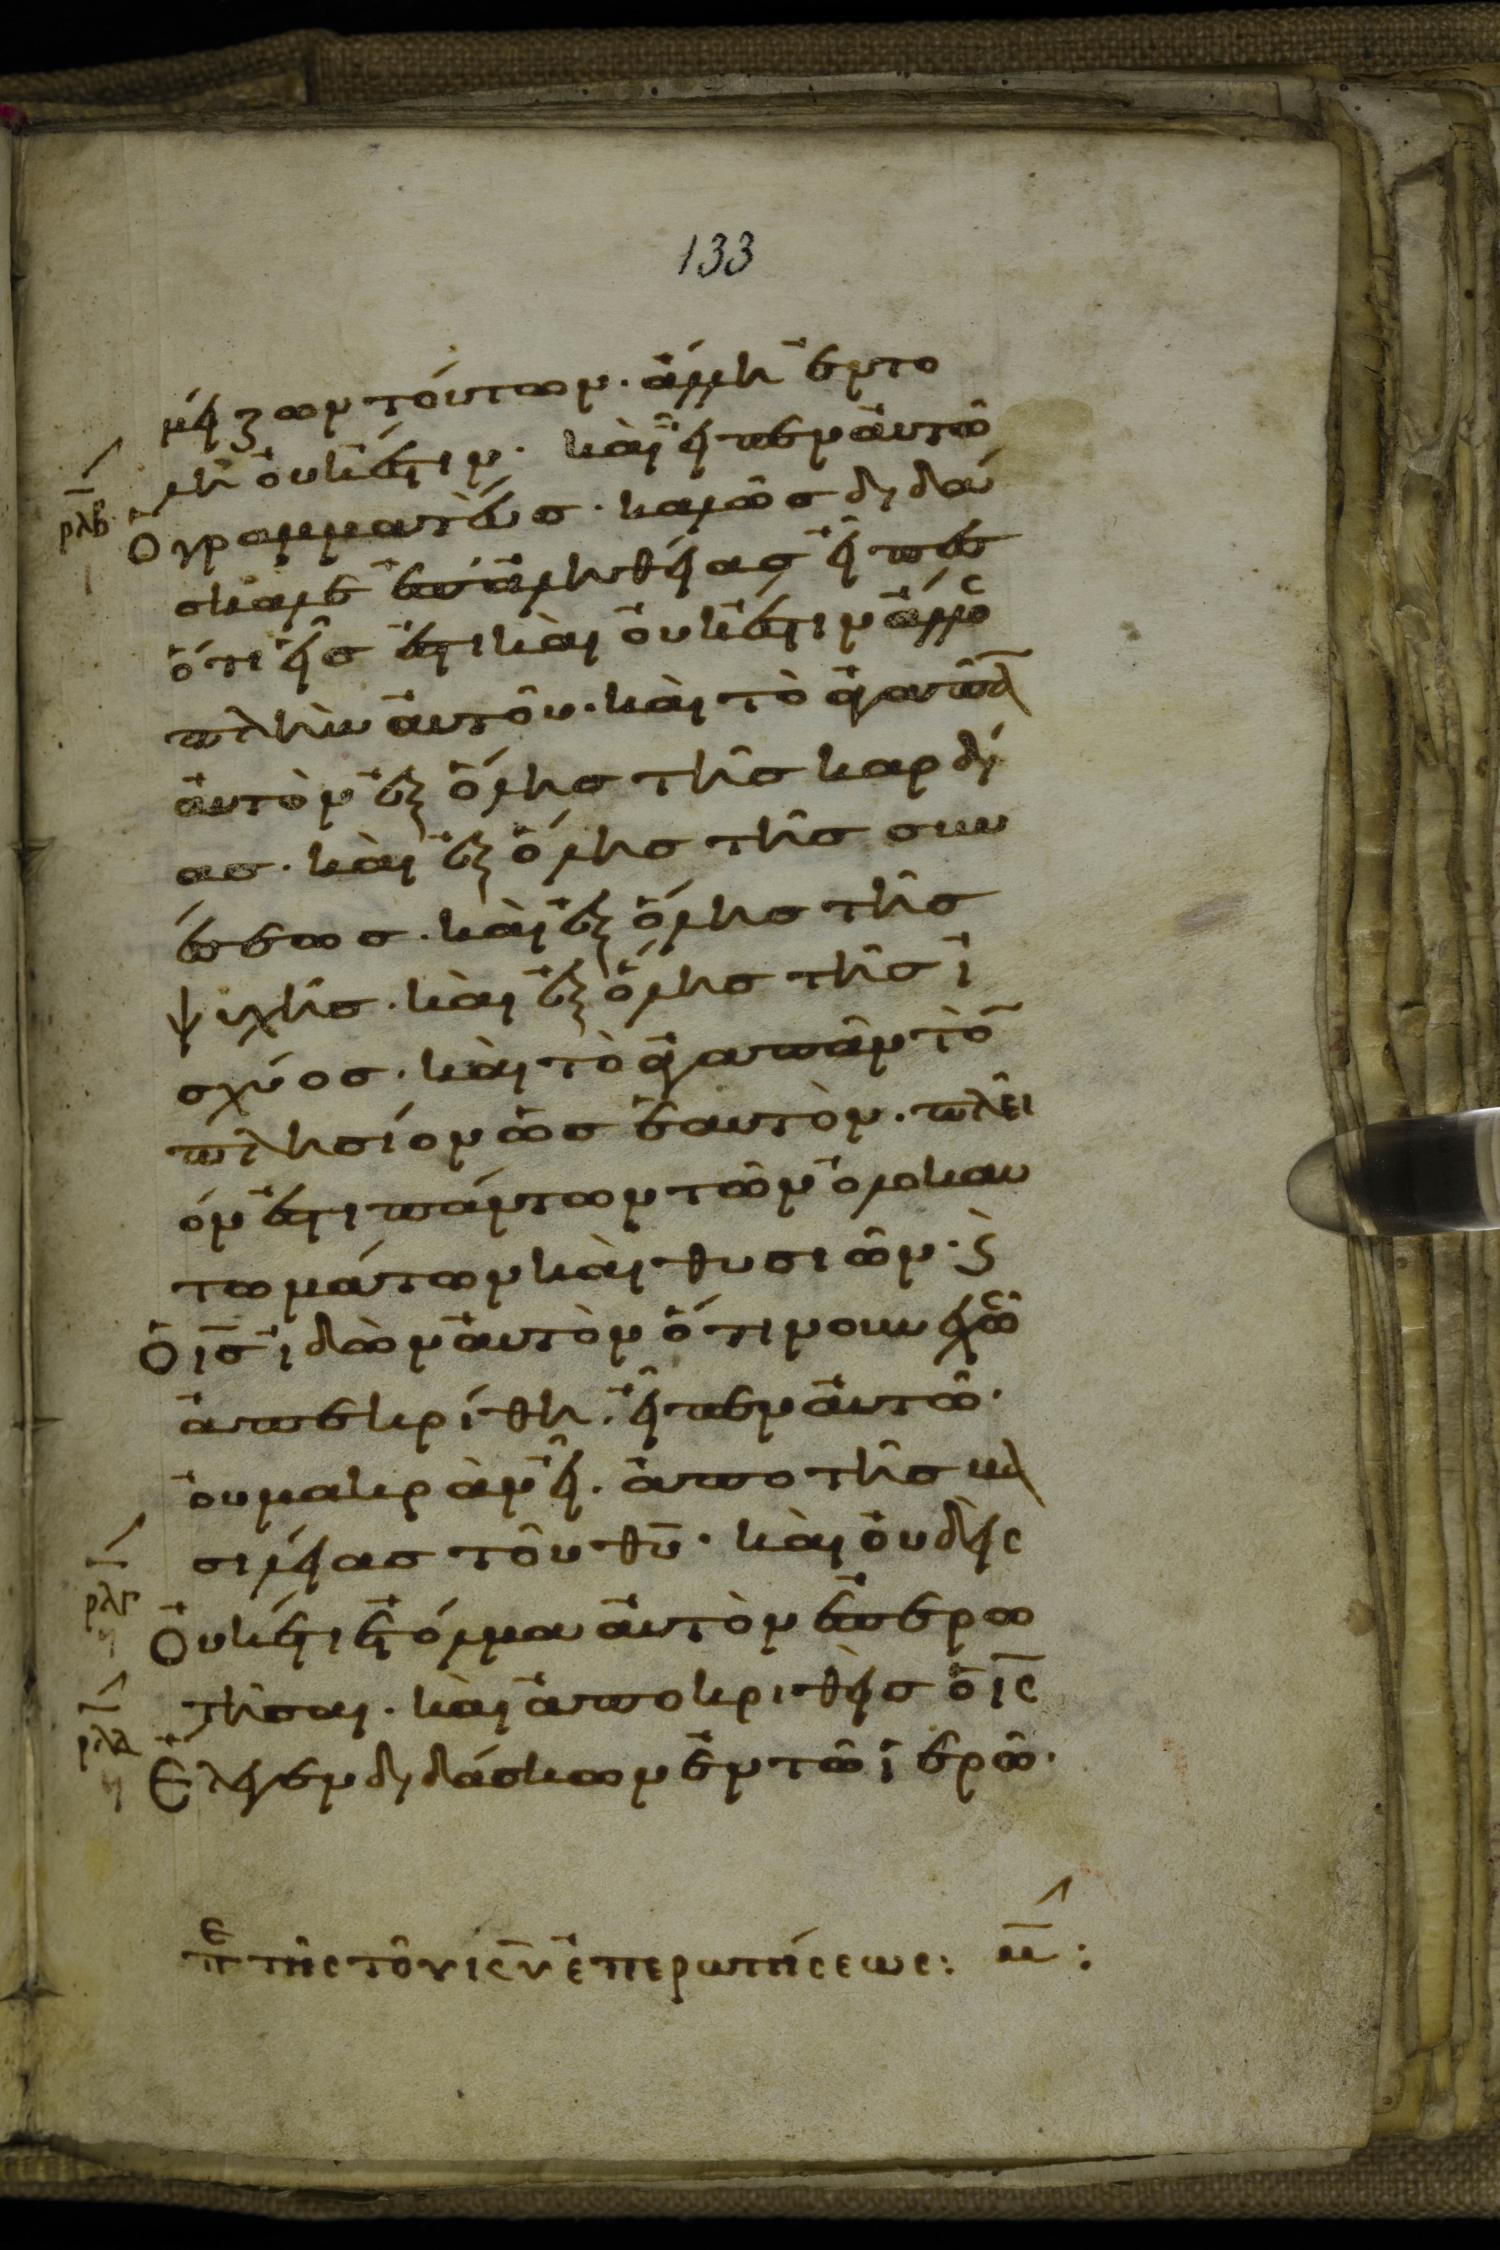 133
μείζων τούτων. ἄλλη ἐντο
λὴ οὐκ ἔστιν. καὶ εἶπεν αὐτῶ
ρλβ Ὁ γραμματεὺς. καλῶς διδά
σκαλε ἐπ ἀληθείας εἶπας
ὅτι εἷς ἐστι καὶ οὐκ ἔστιν ἄλλος
πλὴν αὐτοῦ. καὶ τὸ ἀγαπᾶν
αὐτὸν ἐξ ὅλης τῆς καρδί
ας. καὶ ἐξ ὅλης τῆς συν
έσεως. καὶ ἐξ ὅλης τῆς
ψυχῆς. καὶ ἐξ ὅλης τῆς ἰ
σχύος. καὶ τὸ ἀγαπᾶν τὸν
πλησίον ὡς ἑαυτὸν. πλεῖ
όν ἐστι πάντων τῶν ὁλοκαυ
τωμάτων καὶ θυσιῶν. καὶ
Ὁ ις ἰδὼν αὐτὸν ὅτι νουνεχῶς
ἀπεκρίθη. εἶπεν αὐτῶ.
οὐ μακρὰν εἶ. ἀπο τῆς βα
σιλείας τοῦ θυ. καὶ οὐδεὶς
ρλγ Οὐκέτι ἐτόλμα αὐτὸν ἐπερω
τῆσαι. καὶ ἀποκριθεὶς ὁ ις
ρλδ Ἔλεγεν διδάσκων ἐν τῶ ἱερῶ.
πε τῆς τοῦ κυ ἐπερωτήσεως: μ: